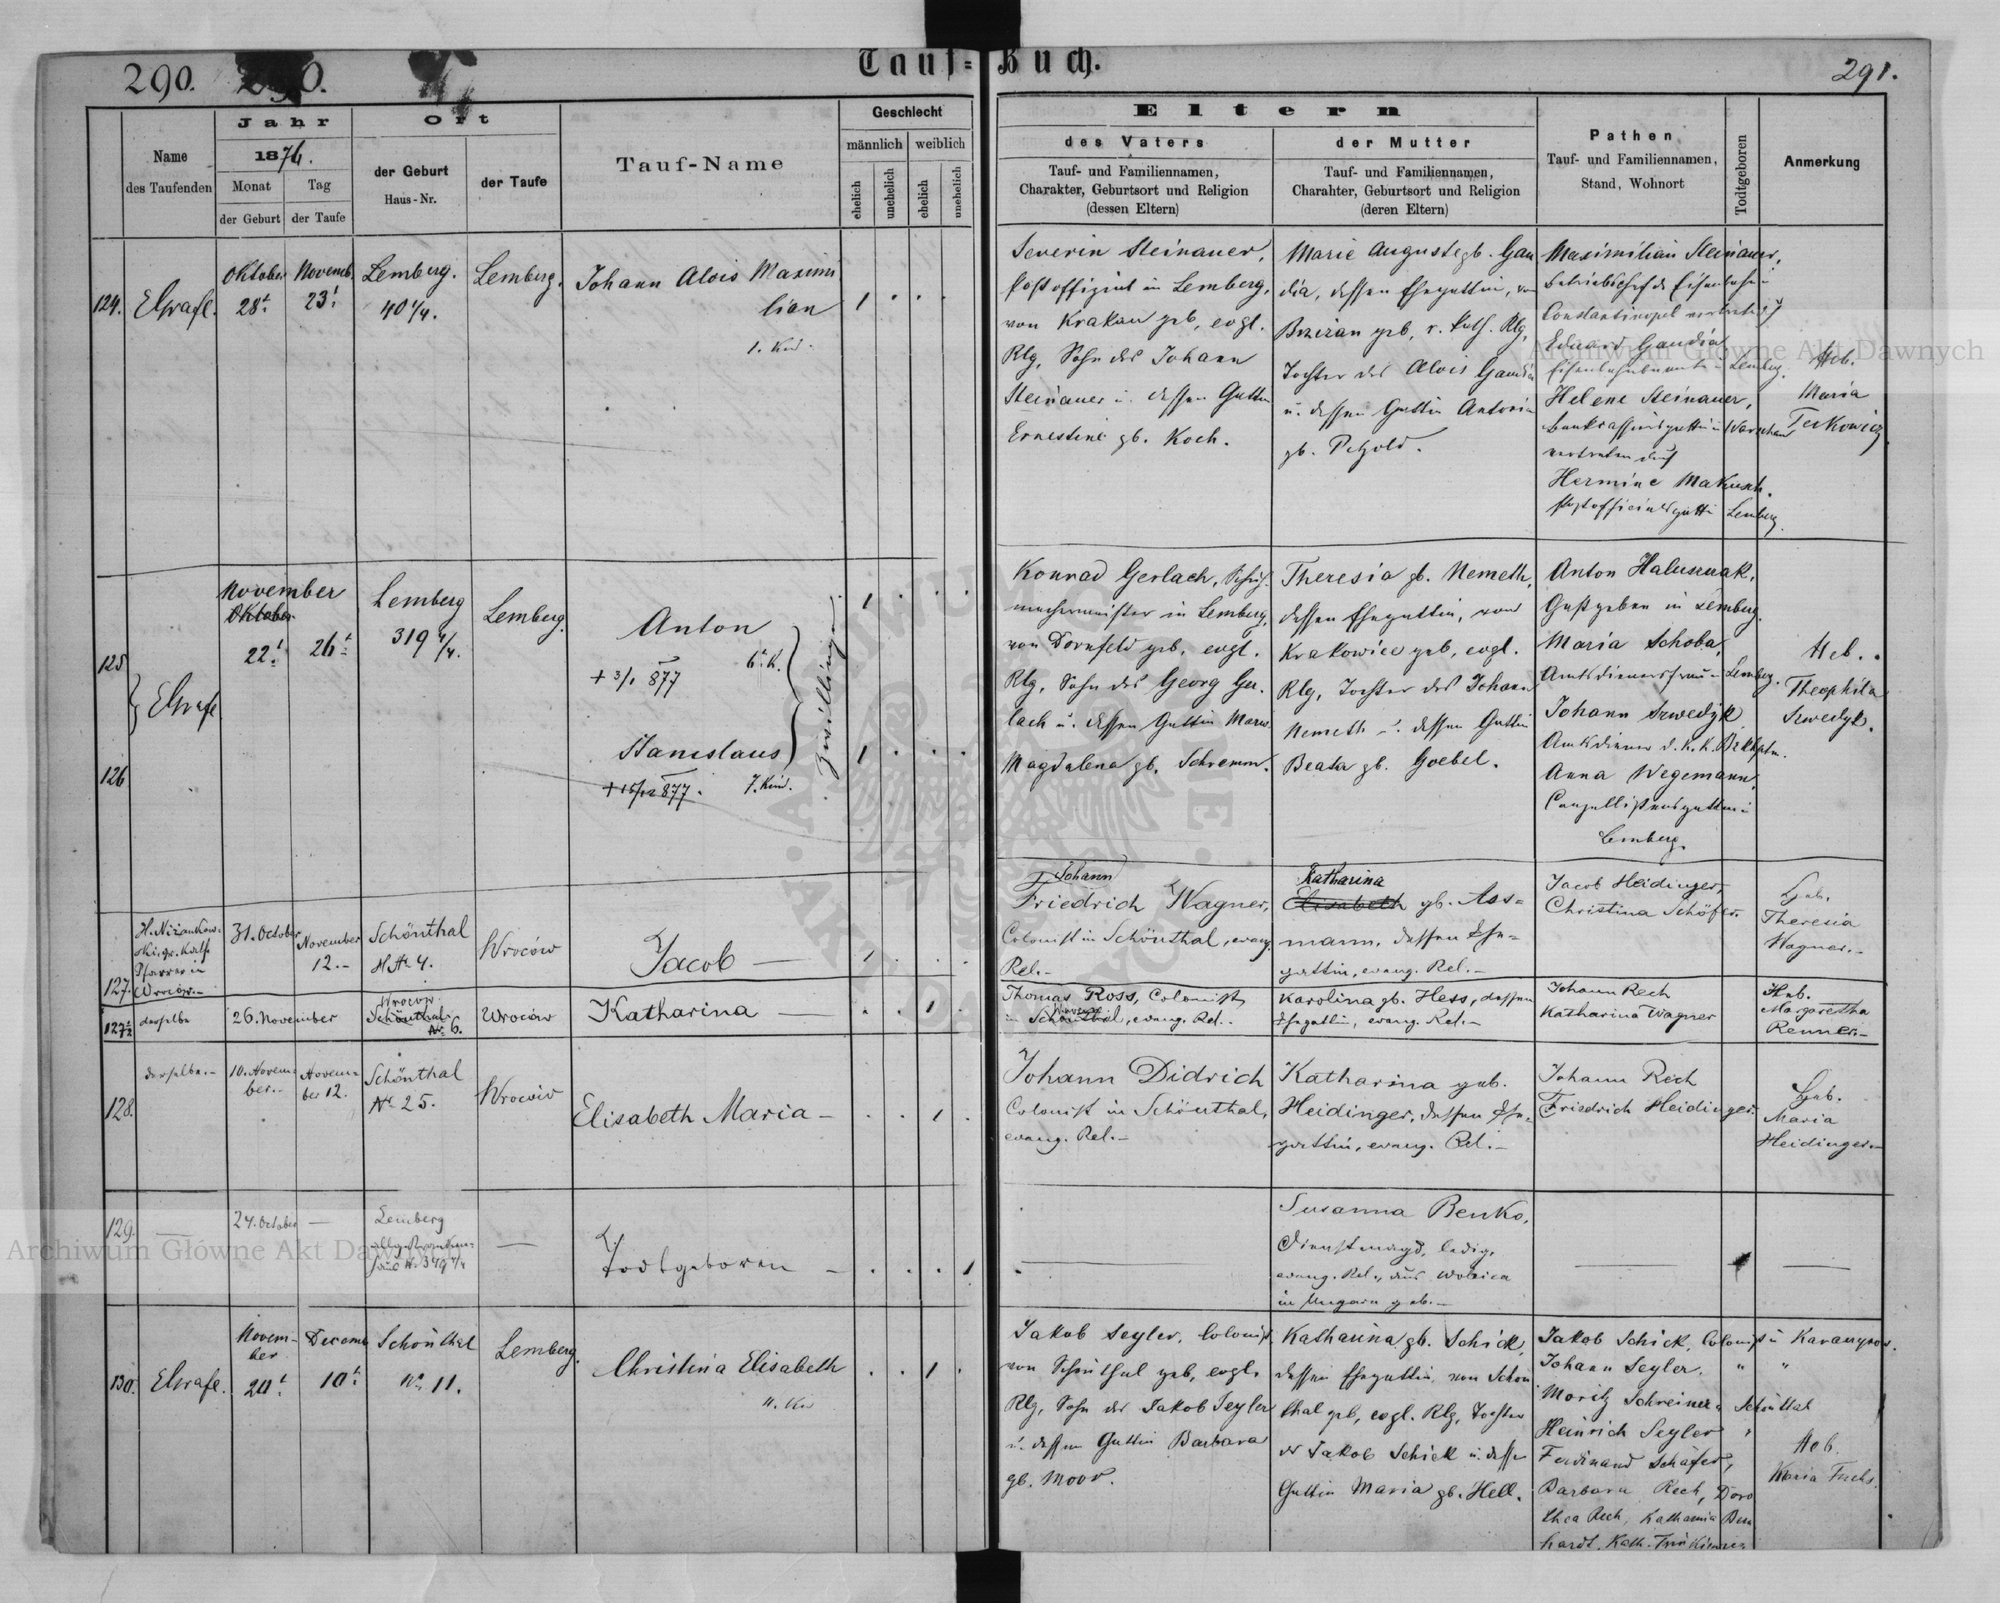 290. 290.
Tauf-Buch.
291.
Name
des Taufenden
Jahr
1876.
Monat
der Geburt
Tag
der Taufe
Ort
der Geburt
Haus-Nr.
der Taufe
Tauf-Name
Geschlecht
männlich
weiblich
ehelich
unehelich
ehelich
unehelich
Eltern
des Vaters
Tauf- und Familiennamen,
Charakter, Geburtsort und Religion
(dessen Eltern)
der Mutter
Tauf- und Familiennamen,
Charahter, Geburtsort und Religion
(deren Eltern)
Pathen
Tauf- und Familiennamen,
Stand, Wohnort
Todtgeboren
Anmerkung
124.
Oktober
28t.
Novemb.
23t.
Lemberg.
40 4/4.
Lemberg.
Johann Alois Maximi
lian
1. Kind.
1 . . .
Severin Steinauer,
Postoffizial in Lemberg,
von Krakau geb, evgl.
Rlg, Sohn des Johann
Steinauer u. dessen Gattin
Ernestine gb. Koch.
Marie Auguste gb. Gau
dia, dessen Ehegattin, von
Brzezan geb, r. kath. Rlg,
Tochter des Alois Gaudia
u. dessen Gattin Antonia
gb. Petzold.
Maximilian Steinauer,
Constantinopel
Eduard Gaudia
Lemberg.
Helene Steinauer,
Warschau
vertreten durch
Hermine Makusch.
Lemberg
Heb.
Maria
125
126
November
Oktober
22t.
26t.
Lemberg
319 4/4.
Lemberg.
Anton
6t. K.
+ 3/1 877
Stanislaus
7. Kind.
+ 15/12 877.
Zwillinge
1 . . .
1 . . .
Konrad Gerlach, Schuh
machermeister in Lemberg,
von Dornfeld geb, evgl.
Rlg, Sohn des Georg Ger
lach u. dessen Gattin Marie
Magdalena gb. Schremm.
Theresia gb. Nemeth,
dessen Ehegattin, von
Krakowiec geb, evgl.
Rlg, Tochter des Johann
Nemeth u. dessen Gattin
Beata gb. Goebel.
Anton Halusznak,
in Lemberg.
Maria Schoba,
Amtsdienersfrau in Lemberg.
Johann Szwedyk
Amtsdiener d. k. k.
Anna Wegemann,
Lemberg.
Heb.
Theophila
Szwedyk.
127.
H. Nizankow-
ski, gr. kath.
Pfarrer in
Wrocow.-
31. October
November
12.-
Schönthal
H№ 4.
Wroców
Jacob —
1 . . .
Johann
Friedrich Wagner,
Colonist in Schönthal, evang.
Rel.-
Katharina
Elisabeth gb. Ass=
mann, dessen Ehe-
gattin, evang. Rel.-
Jacob Heidinger,
Christina Schöfer.
Heb.
Theresia
Wagner.-
127½
derselbe
26. November
Wrocow
Schönthal
№ 6.
Wroców
Katharina —
. . 1 .
Thomas Ross, Colonist
Wrocow
in Schönthal, evang. Rel.-
Karolina gb. Hess, dessen
Ehegattin, evang. Rel.-
Johann Rech
Katharina Wagner
Heb.
Margaretha
Renner.-
128.
derselbe.-
10. Novem=
ber.-
Novem=
ber 12.
Schönthal
№ 25.
Wroców
Elisabeth Maria —
. . 1 .
Johann Didrich
Colonist in Schönthal,
evang. Rel.-
Katharina geb.
Heidinger, dessen Ehe-
gattin, evang. Rel.-
Johann Rech
Friedrich Heidinger.
Heb.
Maria
Heidinger.-
129.
24. October
Lemberg
№ 349 4/4
Todtgeboren —
. . . 1
Susanna Benko,
Dienstmagd, ledig,
evang. Rel., aus
in Ungarn geb.-
130.
Novem-
ber
20t.
Decemb
10t.
Schönthal
№ 11.
Lemberg.
Christina Elisabeth
. . 1 .
Jakob Seyler, Colonist,
von Schönthal geb, evgl.
Rlg, Sohn des Jakob Seyler
u. dessen Gattin Barbara
gb. Moor.
Katharina gb. Schick,
dessen Ehegattin, von Schön
thal geb, evgl. Rlg, Tochter
des Jakob Schick u. dessen
Gattin Maria gb. Hell.
Jakob Schick, Colonist in
Johann Seyler. " "
Moritz Schreiner " Schönthal
Heinrich Seyler "
Ferdinand Schäfer,
Barbara Rech, Doro
thea Rech, Katharina Bern
hardt, Kath.
Heb.
Maria Fuchs.
Archiwum Główne Akt Dawnych
Archiwum Główne Akt Dawnych